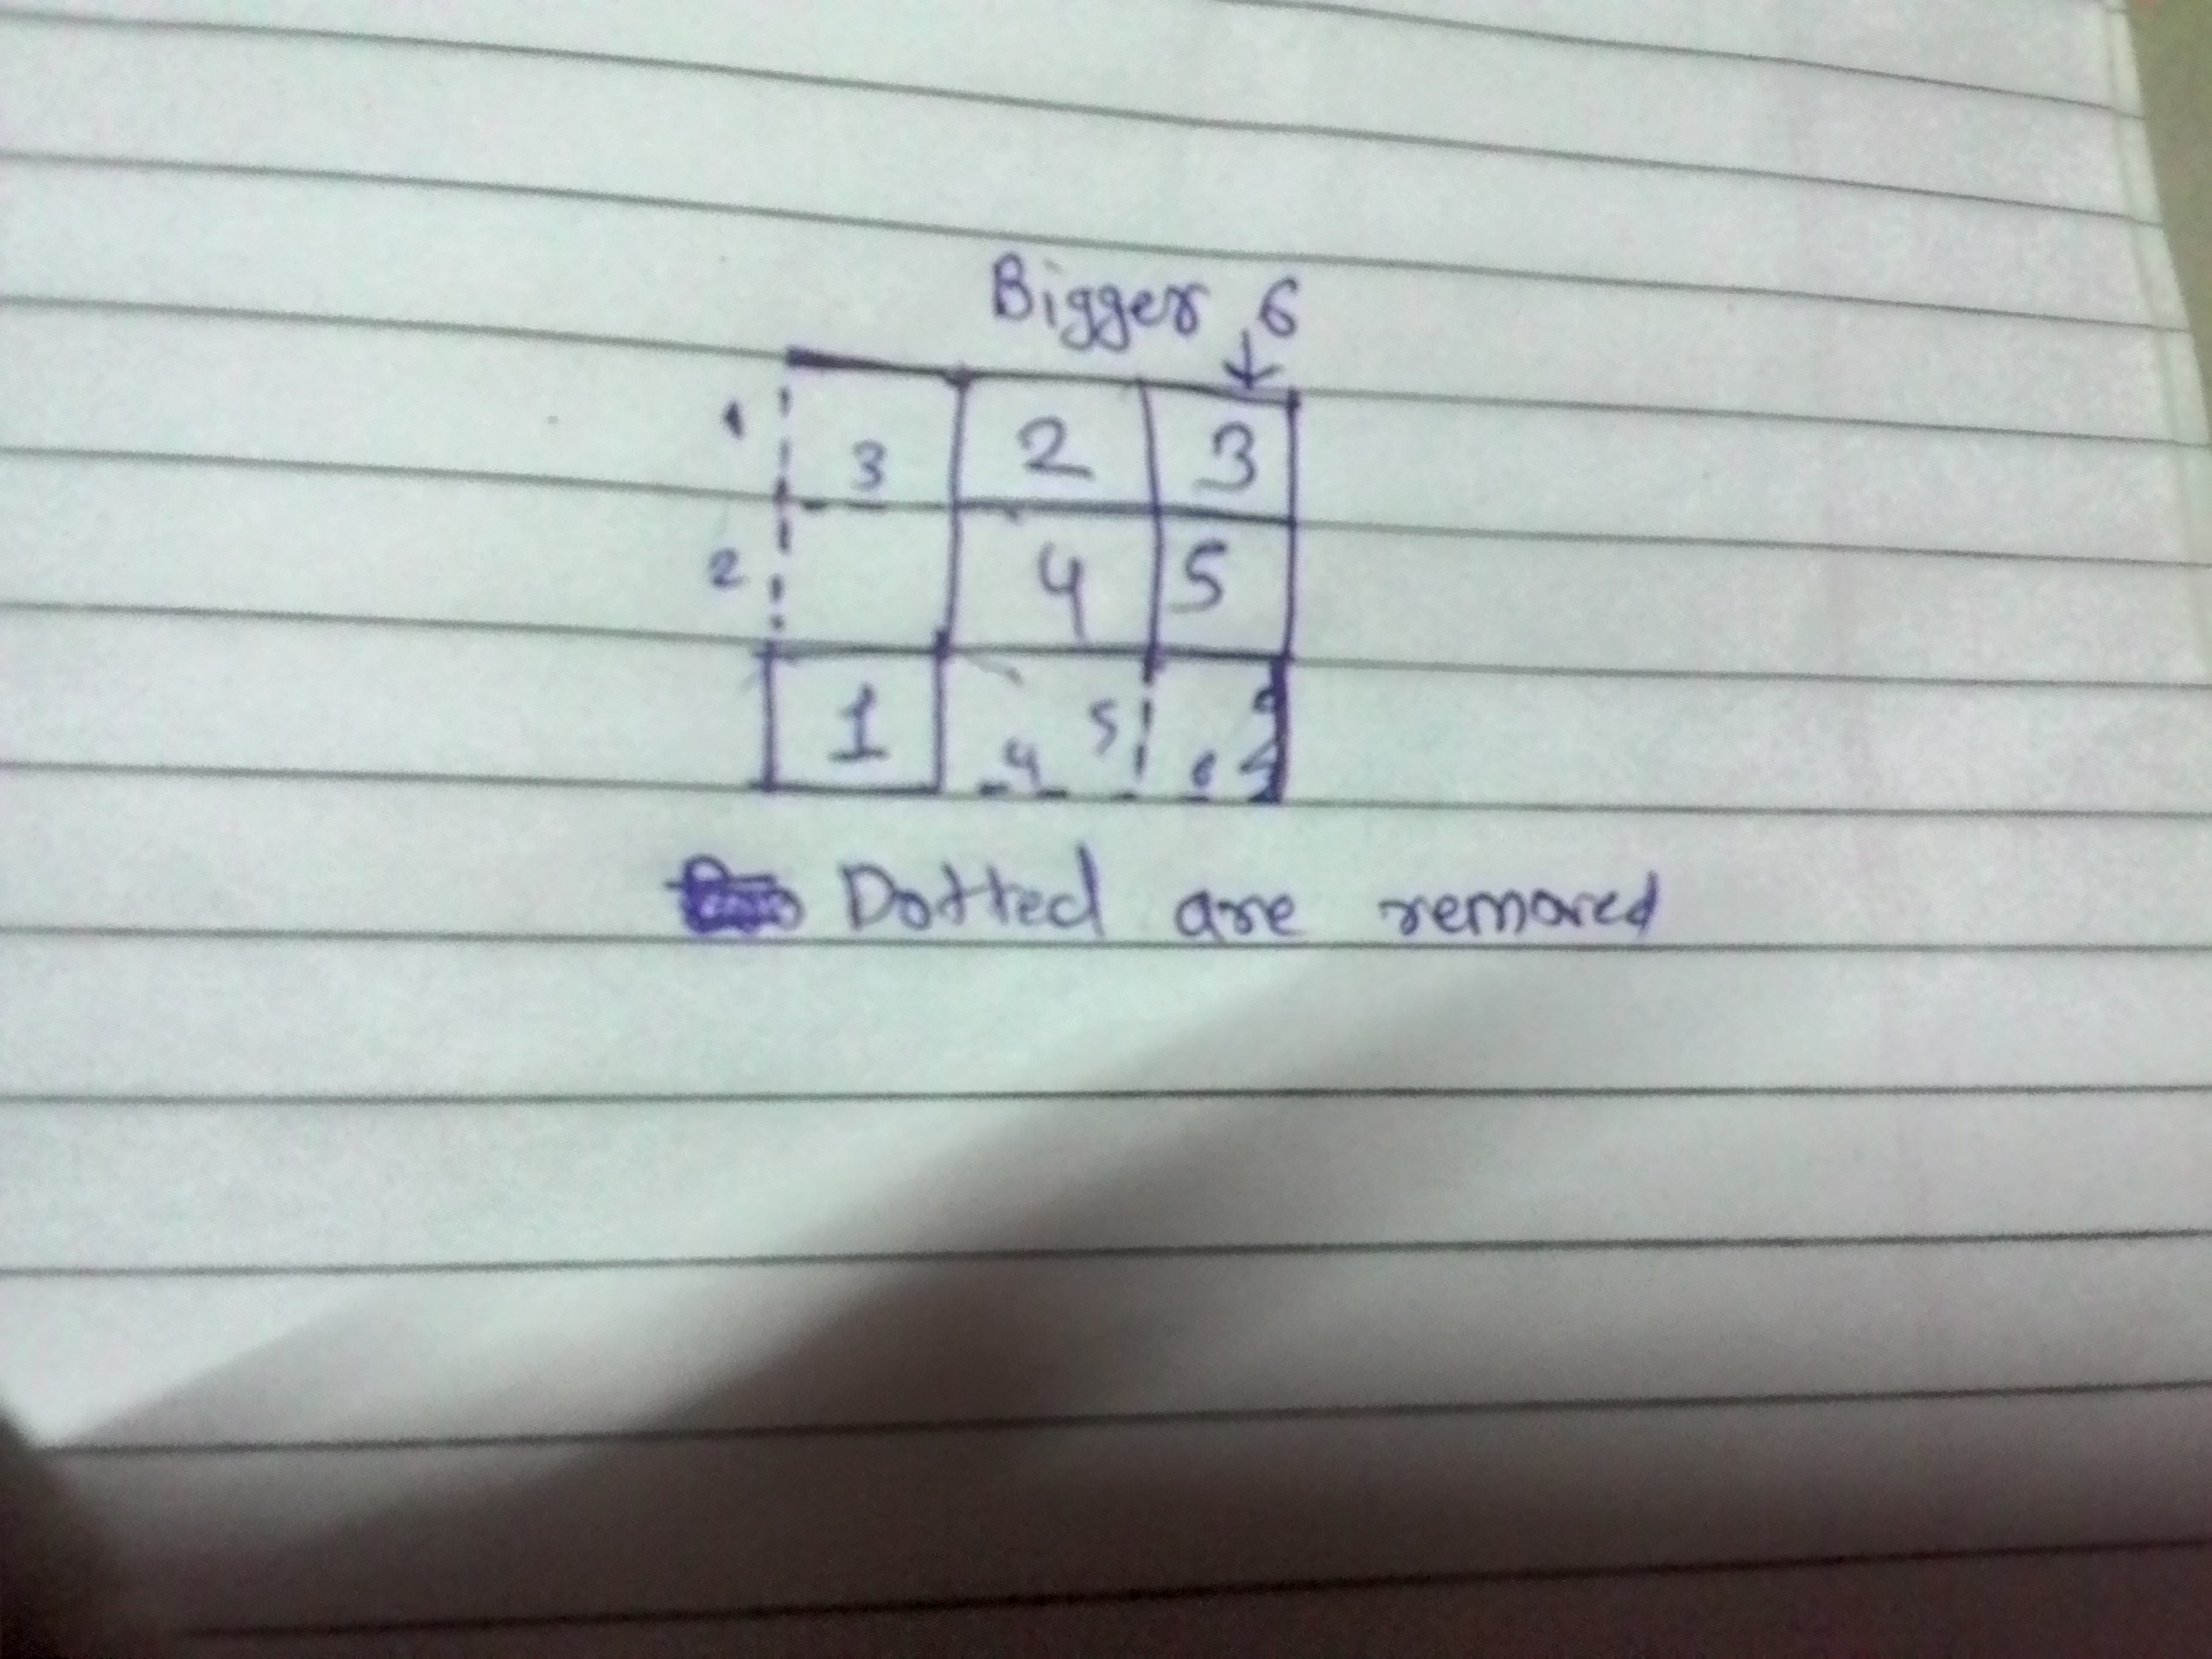 Bigger 6
1 3 2 3
2 4 5
1 4 5 6
Dotted are removed